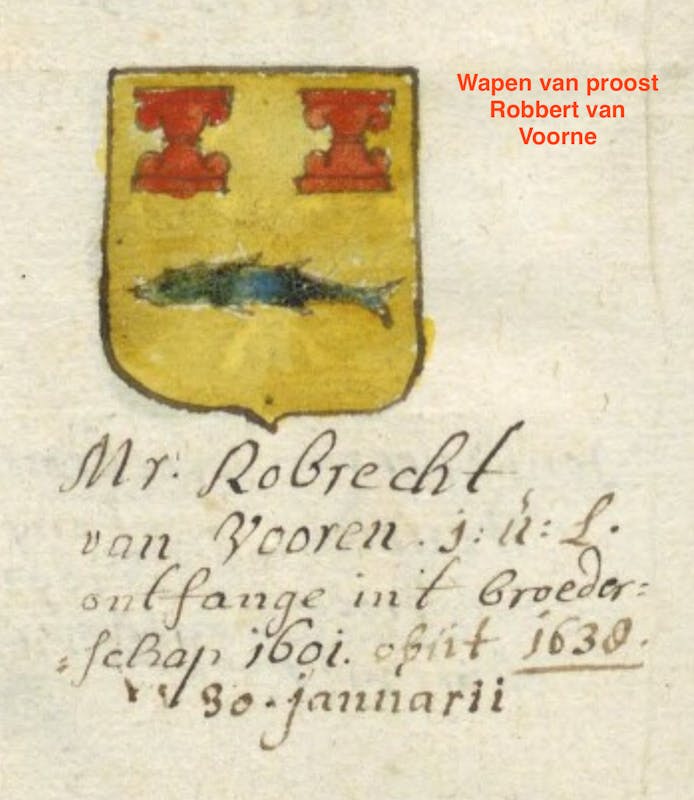 Wapen van proost
Robbert van
Voorne
Mr: Robrecht
van Vooren. j: ü: L.
ontfange in't broeder=
=schap 1601. obiit 1638.
30. jannarii